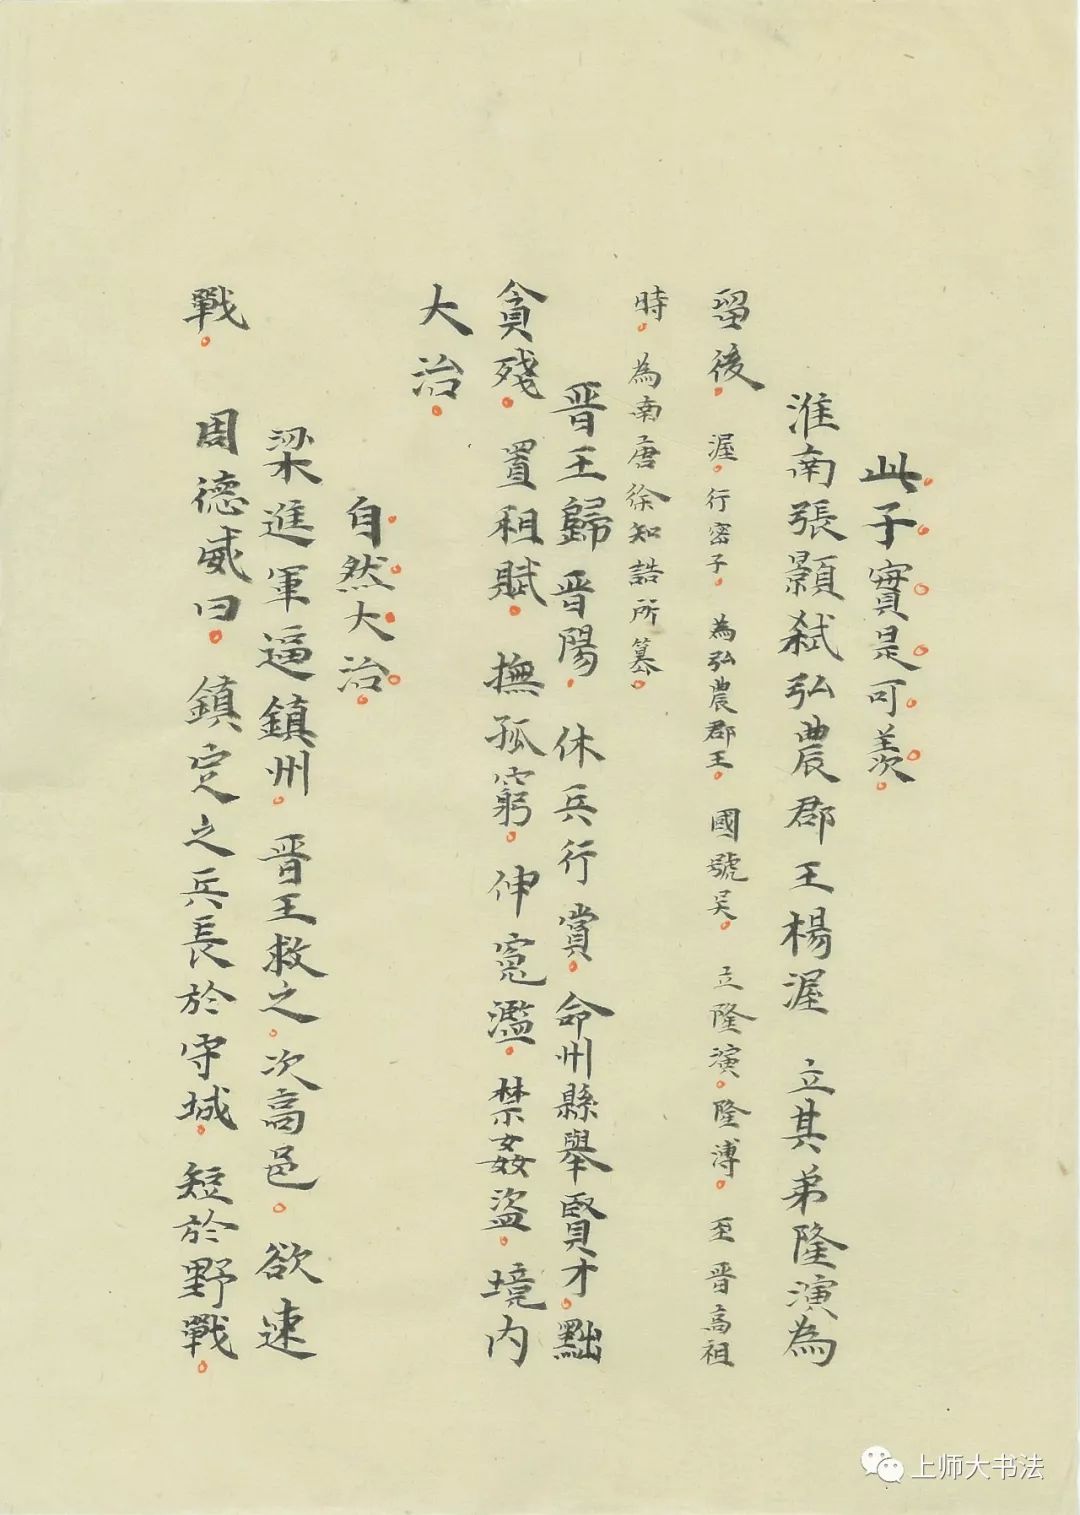 此子實是可羨。
淮南張顥弒弘農郡王楊渥 立其弟隆演為
留後。渥。行密子。為弘農郡王。國號吳。立隆演。隆溥。至晋高祖
時。為南唐徐知誥所篡。
晋王歸晋陽。休兵行賞。命州縣舉賢才。黜
貪殘。置租賦。撫孤窮。伸寃濫。禁姦盜。境内
大治。
自然大治。
梁進軍逼鎮州。晋王救之。次高邑。欲速
戰。周德威曰。鎮定之兵長於守城。短於野戰。
上师大书法